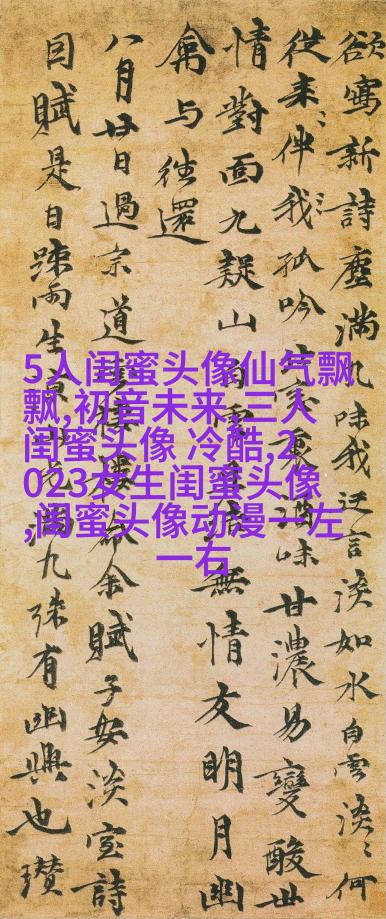 欲寫新詩塵滿几味我迂言淡如水白雲淡〻何
從來〻伴我〻孤吟裏味甘濃易變酸世
情對面九疑山無情友明月幽
禽与往還
八月廿日過宗道命余賦子安淡室詩
因賦是日疎雨生九殊有幽興也瓚
5人闺蜜头像仙气飘
飘,初音未来,三人
闺蜜头像 冷酷,2
023女生闺蜜头像
,闺蜜头像动漫一左
一右